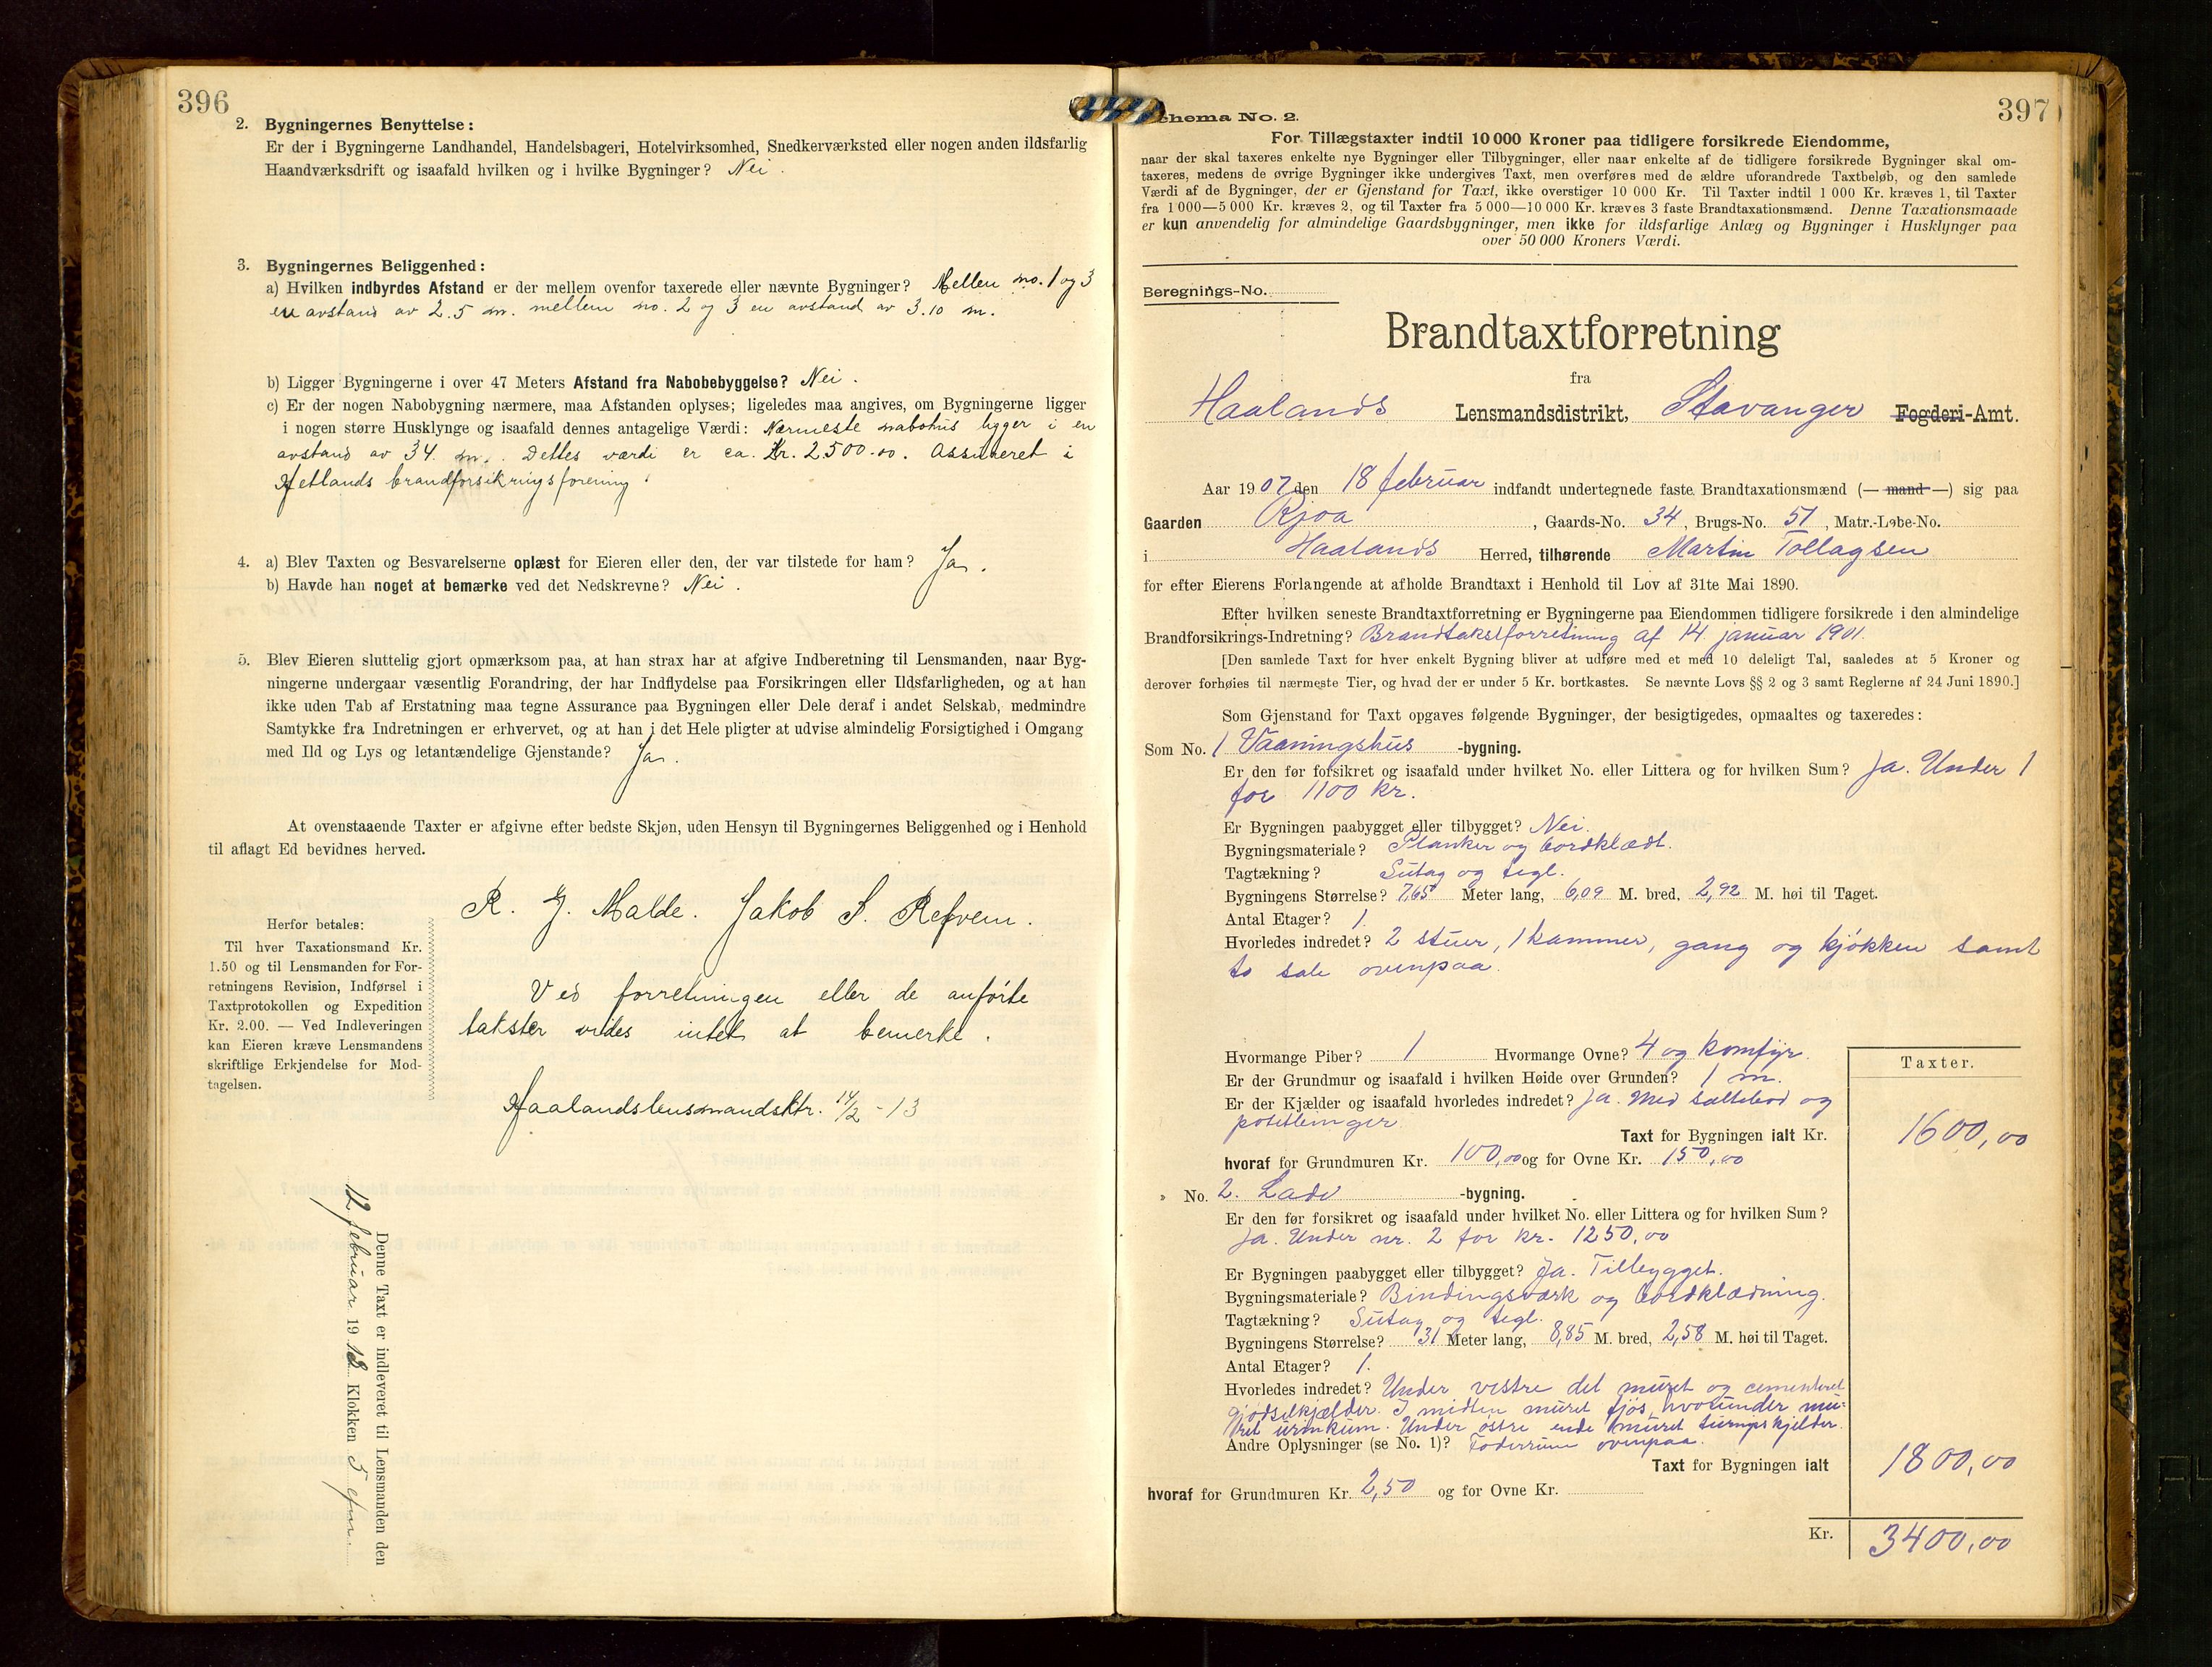 396
2. Bygningernes Benyttelse:
Er der i Bygningerne Landhandel, Handelsbageri, Hotelvirksomhed, Snedkerværksted eller nogen anden ildsfarlig
Haandværksdrift og isaafald hvilken og i hvilke Bygninger? Nei.
3. Bygningernes Beliggenhed:
a) Hvilken indbyrdes Afstand er der mellem ovenfor taxerede eller nævnte Bygninger? Mellen no. 1 og 3
en avstand av 2.5 m. mellem no. 2 og 3 en avstand av 3.10 m.
b) Ligger Bygningerne i over 47 Meters Afstand fra Nabobebyggelse? Nei.
c) Er der nogen Nabobygning nærmere, maa Afstanden oplyses; ligeledes maa angives, om Bygningerne ligger
i nogen større Husklynge og isaafald dennes antagelige Værdi: Nærmeste nabohus ligger i en
avstand av 34 m. Dettes værdi er ca. Kr. 2500.00. Assureret i
Hetlands brandforsikringsforening.
4. a) Blev Taxten og Besvarelserne oplæst for Eieren eller den, der var tilstede for ham? Ja.
b) Havde han noget at bemærke ved det Nedskrevne? Nei.
5. Blev Eieren sluttelig gjort opmærksom paa, at han strax har at afgive Indberetning til Lensmanden, naar Byg-
ningerne undergaar væsentlig Forandring, der har Indflydelse paa Forsikringen eller Ildsfarligheden, og at han
ikke uden Tab af Erstatning maa tegne Assurance paa Bygningen eller Dele deraf i andet Selskab, medmindre
Samtykke fra Indretningen er erhvervet, og at han i det Hele pligter at udvise almindelig Forsigtighed i Omgang
med Ild og Lys og letantændelige Gjenstande? Ja.
At ovenstaaende Taxter er afgivne efter bedste Skjøn, uden Hensyn til Bygningernes Beliggenhed og i Henhold
til aflagt Ed bevidnes herved.
R. G. Malde. Jakob S. Refvem.
Herfor betales:
Til hver Taxationsmand Kr.
1.50 og til Lensmanden for For-
retningens Revision, Indførsel i
Taxtprotokollen og Expedition
Kr. 2.00. — Ved Indleveringen
kan Eieren kræve Lensmandens
skriftlige Erkjendelse for Mod-
tagelsen.
Ved forretningen eller de anførte
takster vides intet at bemerke.
Haalandslensmandsktr. 14/2 - 13
Denne Taxt er indleveret til Lensmanden den
12 februar 1913 Klokken 5 efm.
397
Schema No. 2.
For Tillægstaxter indtil 10 000 Kroner paa tidligere forsikrede Eiendomme,
naar der skal taxeres enkelte nye Bygninger eller Tilbygninger, eller naar enkelte af de tidligere forsikrede Bygninger skal om-
taxeres, medens de øvrige Bygninger ikke undergives Taxt, men overføres med de ældre uforandrede Taxtbeløb, og den samlede
Værdi af de Bygninger, der er Gjenstand for Taxt, ikke overstiger 10 000 Kr. Til Taxter indtil 1 000 Kr. kræves 1, til Taxter
fra 1 000—5 000 Kr. kræves 2, og til Taxter fra 5 000—10 000 Kr. kræves 3 faste Brandtaxationsmænd. Denne Taxationsmaade
er kun anvendelig for almindelige Gaardsbygninger, men ikke for ildsfarlige Anlæg og Bygninger i Husklynger paa
over 50 000 Kroners Værdi.
Beregnings-No.
Brandtaxtforretning
fra
Haalands Lensmandsdistrikt, Stavanger Fogderi-Amt.
Aar 1907 den 18 februar indfandt undertegnede faste Brandtaxationsmænd (— mand —) sig paa
Gaarden Rjoa, Gaards-No. 34, Brugs-No. 51, Matr.-Løbe-No.
i Haalands Herred, tilhørende Martin Tollagsen
for efter Eierens Forlangende at afholde Brandtaxt i Henhold til Lov af 31te Mai 1890.
Efter hvilken seneste Brandtaxtforretning er Bygningerne paa Eiendommen tidligere forsikrede i den almindelige
Brandforsikrings-Indretning? Brandtakstforretning af 14 januar 1901.
[Den samlede Taxt for hver enkelt Bygning bliver at udføre med et med 10 deleligt Tal, saaledes at 5 Kroner og
derover forhøies til nærmeste Tier, og hvad der er under 5 Kr. bortkastes. Se nævnte Lovs §§ 2 og 3 samt Reglerne af 24 Juni 1890.]
Som Gjenstand for Taxt opgaves følgende Bygninger, der besigtigedes, opmaaltes og taxeredes:
Som No. 1 Vaaningshus -bygning.
Er den før forsikret og isaafald under hvilket No. eller Littera og for hvilken Sum? Ja. Under 1
for 1100 kr.
Er Bygningen paabygget eller tilbygget? Nei.
Bygningsmateriale? Planker og bordklædt.
Tagtækning? Sutag og tegl.
Bygningens Størrelse? 7,65 Meter lang, 6,09 M. bred, 2,92 M. høi til Taget.
Antal Etager? 1.
Hvorledes indredet? 2 stuer, 1 kammer, gang og kjøkken samt
to sale ovenpaa.
Hvormange Piber? 1 Hvormange Ovne? 4 og komfyr.
Er der Grundmur og isaafald i hvilken Høide over Grunden? 1 m.
Er der Kjælder og isaafald hvorledes indredet? Ja. Med saltebod og
Taxter.
Taxt for Bygningen ialt Kr. 1600,00
hvoraf for Grundmuren Kr. 100,00 og for Ovne Kr. 150,00
» No. 2. Lade -bygning.
Er den før forsikret og isaafald under hvilket No. eller Littera og for hvilken Sum?
Ja. Under nr. 2 for kr. 1250,00
Er Bygningen paabygget eller tilbygget? Ja. Tilbygget.
Bygningsmateriale? Bindingsværk og bordklædning.
Tagtækning? Sutag og tegl.
Bygningens Størrelse? 31 Meter lang, 8,85 M. bred, 2,58 M. høi til Taget.
Antal Etager? 1.
Hvorledes indredet? Under vestre del muret og cementeret
gjødselkjælder. I midten muret fjøs, hvorunder mu-
ret urinkum. Under østre ende muret turnipskjelder.
Andre Oplysninger (se No. 1)? Foderrum ovenpaa.
Taxt for Bygningen ialt 1800,00
hvoraf for Grundmuren Kr. 2,50 og for Ovne Kr.
Kr. 3400,00